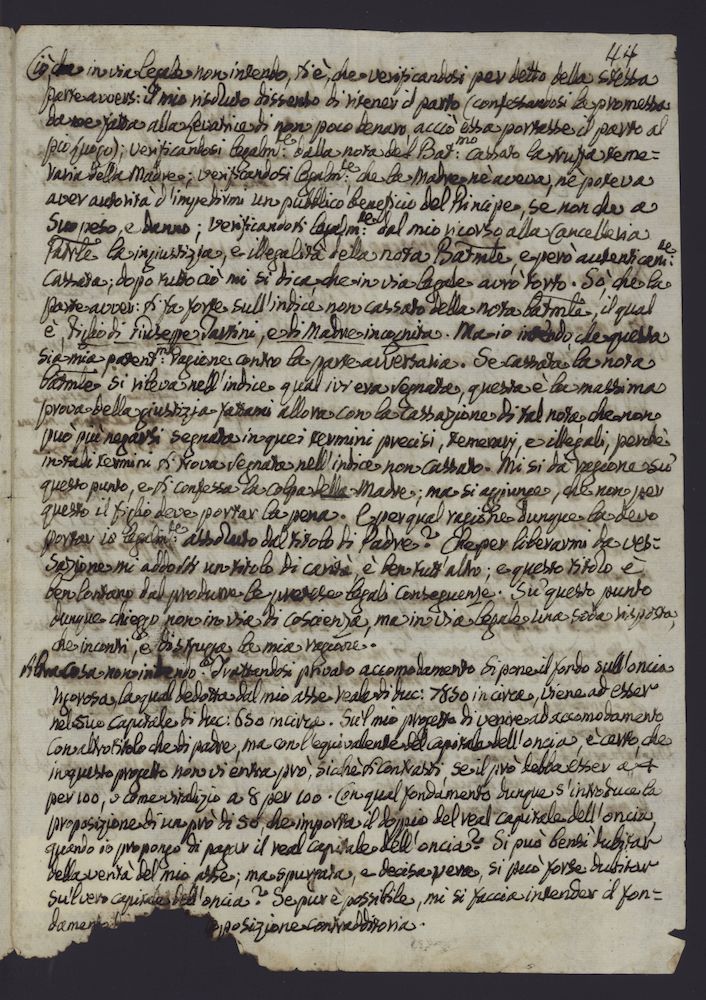 44
Ciò che in via legale non intendo, si è, che verificandosi per detto della stessa
parte avvers: il mio risoluto dissenso di ritener il parto (confessandosi la promessa
da me fatta alla levatrice di non poco denaro, acciò essa portasse il parto al
pio luogo); verificandosi legalm:te dalla nota del Bat:mo cassato la truffa teme=
raria della Madre; verificandosi legalm:te, che la Madre nè aveva, nè poteva
aver autorità d'impedirmi un pubblico beneficio del Principe, se non che a
suo peso, e danno; verificandosi legalm:te dal mio ricorso alla Cancelleria
la ingiustizia, e illegalità della nota Batmle, e però autenticam:te
cassata; dopo tutto ciò mi si dica, che in via legale avrò torto. Sò, che la
parte avver: si fa forte sull'indice non cassato della nota batmle, il qual
è, figlio di Giuseppe Tartini, e di Madre incognita. Ma io intendo che questa
sia mia potent:ma ragione contro la parte avversaria. Se cassata la nota
batmle si rileva nell'indice qual ivi era segnata, questa è la massima
prova della giustizia fatami allora con la cassazione di tal nota, che non
può più negarsi segnata in quei termini precisi, temerarj, e illegali, perchè
in tali termini si trova segnata nell'indice non cassato. Mi si dà ragione su
questo punto, e si confessa la colpa della Madre; ma si aggiunge, che non per
questo il figlio deve portar la pena. E per qual ragione dunque la devo
portar io legalm:te assoluto dal titolo di Padre? Che per liberarmi da ves=
sazione mi addossi un titolo di carità, è ben tutt'altro; e questo titolo è
ben lontano dal produrre le pretese legali conseguenze. Su questo punto
dunque chiego non in via di coscienza, ma in via legale una soda risposta,
che incontri, e distrugga la mia ragione.
Altra cosa non intendo. Trattandosi privato accomodamento si pone il fondo sull'oncia
rigorosa, la qual dedotta dal mio asse reale di duc: 7850 in circa, viene ad esser
nel suo capitale di duc: 650 in circa. Sul mio progetto di venire ad accomodamento
con altro titolo che di padre, ma con l'equivalente del capitale dell'oncia, è certo, che
in questo progetto non vi entra prò, sicchè si contrasti, se il prò debba esser a 4
per 100, o come vitalizio a 8 per 100. Con qual fondamento dunque s'introduce la
proposizione di un prò di 50, che importa il doppio del real capitale dell'oncia,
quando io propongo di pagar il real capitale dell'oncia? Si può bensì dubitar
della verità del mio asse; ma spurgata, e decisa vera, si può forse dubitar
sul vero capitale dell'oncia? Se pur è possibile, mi si faccia intender il fon=
damento di posizione contradittoria.